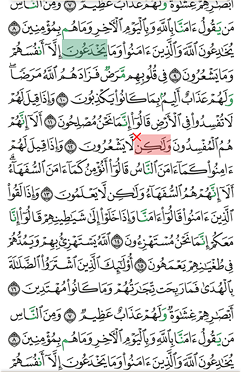 أَبْصَٰرِهِمْ غِشَٰوَةٌ وَلَهُمْ عَذَابٌ عَظِيمٌ ٧ وَمِنَ ٱلنَّاسِ
مَن يَقُولُ ءَامَنَّا بِٱللَّهِ وَبِٱلْيَوْمِ ٱلْأَخِرِ وَمَا هُم بِمُؤْمِنِينَ ٨
يُخَٰدِعُونَ ٱللَّهَ وَٱلَّذِينَ ءَامَنُوا۟ وَمَا يَخْدَعُونَ إِلَّآ أَنفُسَهُمْ
وَمَا يَشْعُرُونَ ٩ فِى قُلُوبِهِم مَّرَضٌ فَزَادَهُمُ ٱللَّهُ مَرَضًا
وَلَهُمْ عَذَابٌ أَلِيمٌۢ بِمَا كَانُوا۟ يَكْذِبُونَ ١٠ وَإِذَا قِيلَ لَهُمْ
لَا تُفْسِدُوا۟ فِى ٱلْأَرْضِ قَالُوٓا۟ إِنَّمَا نَحْنُ مُصْلِحُونَ ١١ أَلَآ إِنَّهُمْ
هُمُ ٱلْمُفْسِدُونَ وَلَٰكِن لَّا يَشْعُرُونَ ١٢ وَإِذَا قِيلَ لَهُمْ
ءَامِنُوا۟ كَمَآ ءَامَنَ ٱلنَّاسُ قَالُوٓا۟ أَنُؤْمِنُ كَمَآ ءَامَنَ ٱلسُّفَهَآءُ
أَلَآ إِنَّهُمْ هُمُ ٱلسُّفَهَآءُ وَلَٰكِن لَّا يَعْلَمُونَ ١٣ وَإِذَا لَقُوا۟
ٱلَّذِينَ ءَامَنُوا۟ قَالُوٓا۟ ءَامَنَّا وَإِذَا خَلَوْا۟ إِلَىٰ شَيَٰطِينِهِمْ قَالُوٓا۟ إِنَّا
مَعَكُمْ إِنَّمَا نَحْنُ مُسْتَهْزِءُونَ ١٤ ٱللَّهُ يَسْتَهْزِئُ بِهِمْ وَيَمُدُّهُمْ
فِى طُغْيَٰنِهِمْ يَعْمَهُونَ ١٥ أُو۟لَٰٓئِكَ ٱلَّذِينَ ٱشْتَرَوُا۟ ٱلضَّلَٰلَةَ
بِٱلْهُدَىٰ فَمَا رَبِحَت تِّجَٰرَتُهُمْ وَمَا كَانُوا۟ مُهْتَدِينَ ١٦
أَبْصَٰرِهِمْ غِشَٰوَةٌ وَلَهُمْ عَذَابٌ عَظِيمٌ ٧ وَمِنَ ٱلنَّاسِ
مَن يَقُولُ ءَامَنَّا بِٱللَّهِ وَبِٱلْيَوْمِ ٱلْأَخِرِ وَمَا هُم بِمُؤْمِنِينَ ٨
يُخَٰدِعُونَ ٱللَّهَ وَٱلَّذِينَ ءَامَنُوا۟ وَمَا يَخْدَعُونَ إِلَّآ أَنفُسَهُمْ